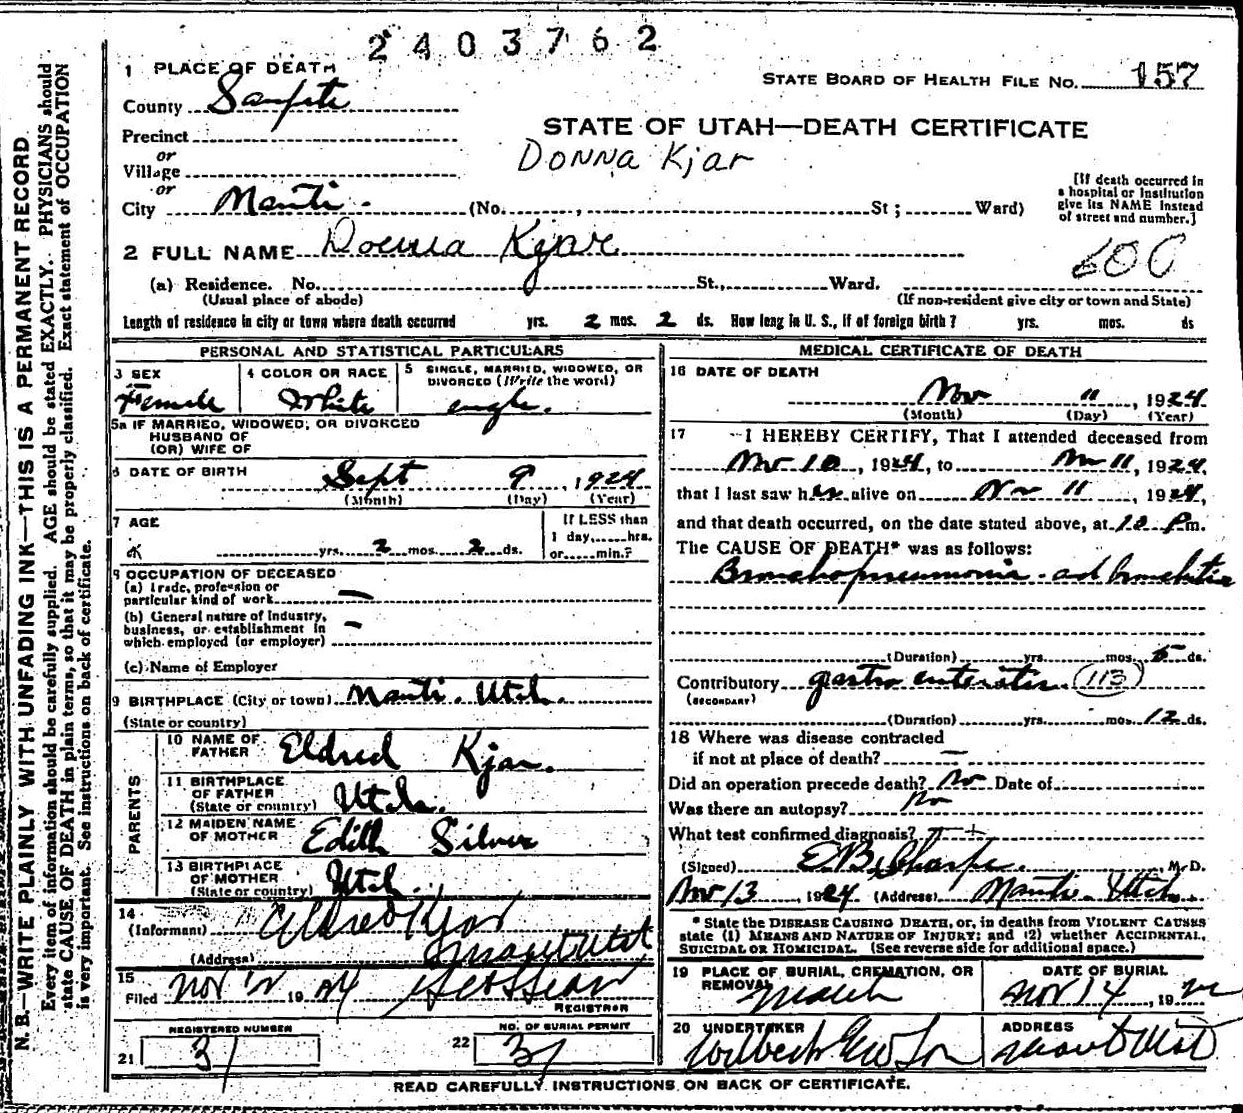 2403762
1 PLACE OF DEATH
STATE BOARD OF HEALTH FILE No. 157
County Sanpete
STATE OF UTAH—DEATH CERTIFICATE
Precinct
or
Donna Kjar
Village
or
City Manti. (No. , St ; Ward)
[If death occurred in a hospital or institution give its NAME instead of street and number.]
2 FULL NAME Donna Kjar
600
(a) Residence. No. St., Ward.
(Usual place of abode) (If non-resident give city or town and State)
Length of residence in city or town where death occurred yrs. 2 mos. 2 ds. How long in U. S., if of foreign birth? yrs. mos. ds
PERSONAL AND STATISTICAL PARTICULARS
3 SEX
Female
4 COLOR OR RACE
White
5 SINGLE, MARRIED, WIDOWED, OR DIVORCED (Write the word)
single.
5a IF MARRIED, WIDOWED, OR DIVORCED
HUSBAND OF
(OR) WIFE OF
6 DATE OF BIRTH Sept 9, 1924
(Month) (Day) (Year)
7 AGE
yrs. 2 mos. 2 ds.
If LESS than
1 day, hrs.
or min.?
8 OCCUPATION OF DECEASED
(a) Trade, profession or
particular kind of work —
(b) General nature of Industry,
business, or establishment in
which employed (or employer) —
(c) Name of Employer
9 BIRTHPLACE (City or town) Manti. Utah.
(State or country)
PARENTS
10 NAME OF FATHER Eldred Kjar.
11 BIRTHPLACE OF FATHER (State or country) Utah.
12 MAIDEN NAME OF MOTHER Edith Silver
13 BIRTHPLACE OF MOTHER (State or country) Utah.
14
(Informant) Eldred Kjar
(Address) Manti Utah
15
Filed Nov 12 1924
REGISTRAR
REGISTERED NUMBER
21 31
NO. OF BURIAL PERMIT
22 31
MEDICAL CERTIFICATE OF DEATH
16 DATE OF DEATH
Nov 11, 1924
(Month) (Day) (Year)
17 I HEREBY CERTIFY, That I attended deceased from
Nov 10, 1924, to Nov 11, 1924,
that I last saw her alive on Nov 11, 1924,
and that death occurred, on the date stated above, at 10 Pm.
The CAUSE OF DEATH* was as follows:
Bronchopneumonia and bronchitis
(Duration) yrs. mos. 5 ds.
Contributory gastro enteritis (113)
(SECONDARY)
(Duration) yrs. mos. 12 ds.
18 Where was disease contracted
if not at place of death? —
Did an operation precede death? No Date of
Was there an autopsy? No
What test confirmed diagnosis?
(Signed) M-D.
Nov 13, 1924 (Address) Manti Utah.
* State the DISEASE CAUSING DEATH, or, in deaths from VIOLENT CAUSES
state (1) MEANS AND NATURE OF INJURY; and (2) whether ACCIDENTAL,
SUICIDAL OR HOMICIDAL. (See reverse side for additional space.)
19 PLACE OF BURIAL, CREMATION, OR REMOVAL
Manti
DATE OF BURIAL
Nov 14, 192
20 UNDERTAKER
ADDRESS
Manti Utah
READ CAREFULLY INSTRUCTIONS ON BACK OF CERTIFICATE.
N. B.—WRITE PLAINLY WITH UNFADING INK—THIS IS A PERMANENT RECORD
Every item of information should be carefully supplied. AGE should be stated EXACTLY. PHYSICIANS should
state CAUSE OF DEATH in plain terms, so that it may be properly classified. Exact statement of OCCUPATION
is very important. See instructions on back of certificate.